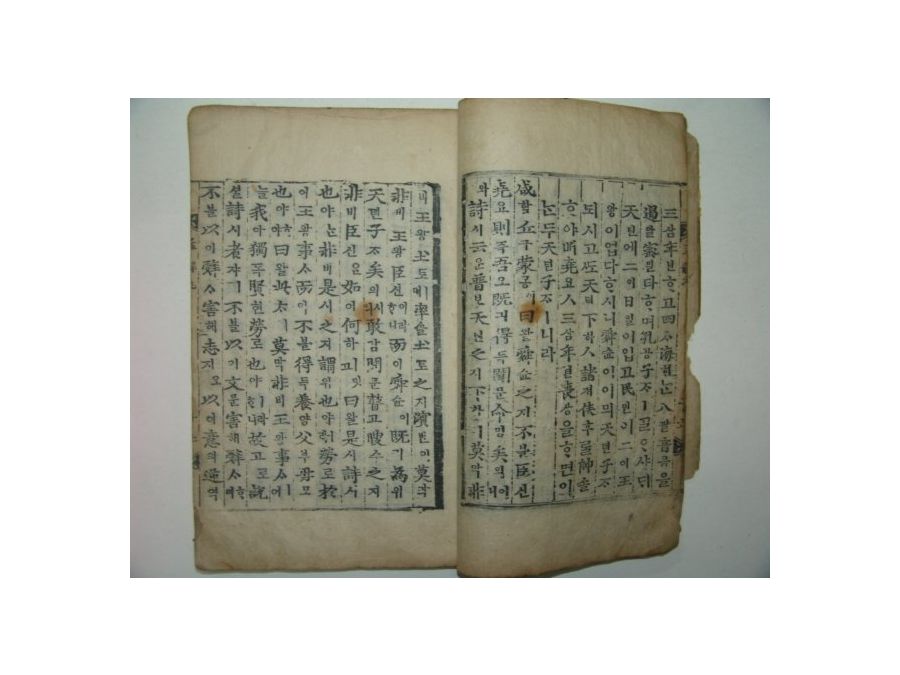 三삼年년ᄒᆞ고四ᄉᆞ海ᄒᆡᄂᆞᆫ八팔音음을
遏알密밀다ᄒᆞ며孔공子ᄌᆞㅣᄀᆞᆯᄋᆞ샤ᄃᆡ
天텬에二이日일이업고民민이二이王
왕이업다ᄒᆞ시니舜슌이이믜天텬子ᄌᆞ
되시고ᄯᅩ天텬下하人諸졔侯후ᄅᆞᆯ帥솔
ᄒᆞ야ᄡᅥ堯요人三삼年년喪상을ᄒᆞ면이
ᄂᆞᆫ두天텬子ᄌᆞㅣ니라
咸함丘구蒙몽이曰왈舜슌之지不블臣신
堯요則즉吾오ㅣ旣긔得득聞문命명矣의어니
와詩시云운普보天텬之지下하ㅣ莫막非
비王왕土토ㅣ며率솔土토之지濱빈이莫막
非비王왕臣신이라ᄒᆞ니而이舜슌이旣긔爲위
天텬子ᄌᆞ矣의시니敢감問문瞽고瞍수之지
非비臣신은如여何하ㅣ잇고曰왈是시詩시
也야ᄂᆞᆫ非비是시之지謂위也야라勞로於
어王왕事ᄉᆞ而이不블得득養양父부母모
也야ᄒᆞ야曰왈此ᄎᆞㅣ莫막非비王왕事ᄉᆞㅣ어
늘我아獨독賢현勞로也야ㅣ라ᄒᆞ니故고로說
셜詩시者쟈ㅣ不블以이文문害해辭ᄉᆞᄒᆞ며
不블以이辭ᄉᆞ害해志지오以이意의逆역